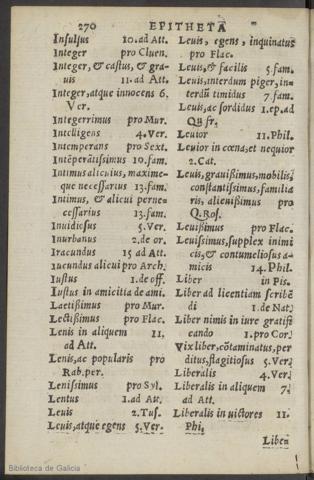 270 EPITHETA
Insulsus 10.ad Att.
Integer pro Cluen.
Integer, & castus, & gra-
uis 11.ad Att.
Integer, atque innocens 6.
Ver.
Integerrimus pro Mur.
Intelligens 4.Ver.
Intemperans pro Sext.
Intēperātissimus 10.fam.
Intimus alicuius, maxime-
que necessarius 13.fam.
Intimus, & alicui perne-
cessarius 13.fam.
Inuidiosus 5.Ver.
Inurbanus 2.de or.
Iracundus 15 ad Att.
Iucundus alicui pro Arch.
Iustus 1.de off.
Iustus in amicitia de ami.
Laetissimus pro Mur.
Lectissimus pro Flac.
Lenis in aliquem 11.
ad Att.
Lenis, ac popularis pro
Rab.per.
Lenissimus pro Syl.
Lentus 1.ad Att.
Leuis 2.Tus.
Leuis, atque egens 5.Ver.
Leuis, egens, inquinatus
pro Flac.
Leuis, & facilis 5.fam.
Leuis, interdum piger, in-
terdū timidus 7.fam.
Leuis, ac sordidus 1.ep.ad
Qu fr.
Leuior 11.Phil.
Leuior in cœna, et nequior
2.Cat.
Leuis, grauissimus, mobilis,
constantissimus, familia
ris, alienissimus pro
Q.Ros.
Leuissimus pro Flac.
Leuissimus, supplex inimi
cis, & contumeliosus a-
micis 14.Phil.
Liber in Pis.
Liber ad licentiam scribē
di 1.de Nat.
Liber nimis in iure gratifi
cando 1.pro Cor.
Vix liber, cōtaminatus, per
ditus, flagitiosus 5.Ver.
Liberalis 4.Ver.
Liberalis in aliquem 7.
ad Att.
Liberalis in uictores 11.
Phi.
Liben
Biblioteca de Galicia